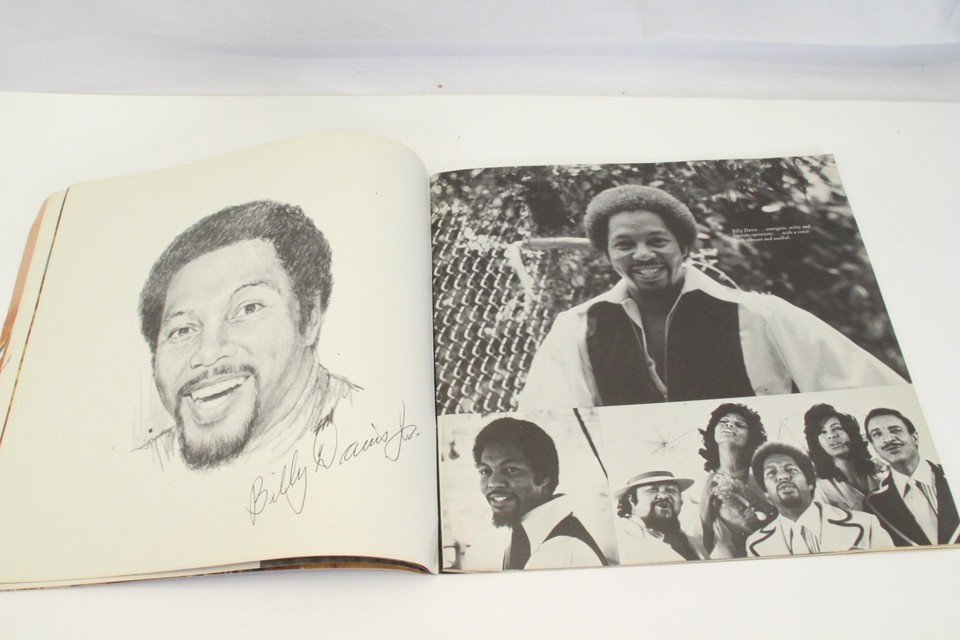 Billy Davis Jr.
Billy Davis . . . energetic, witty and
with a voice
and soulful.